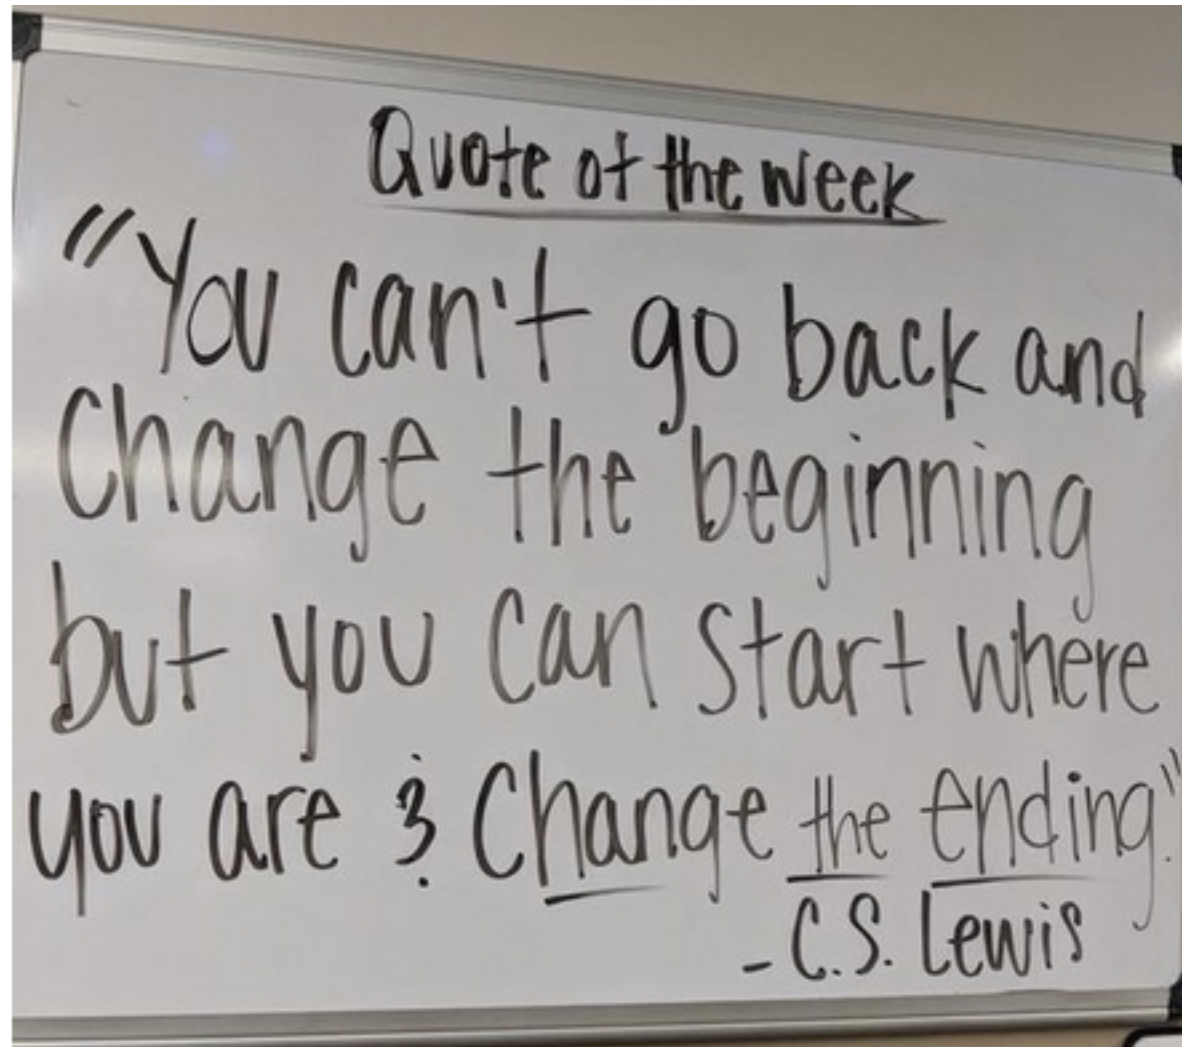 Quote of the week
"You can't go back and
Change the beginning
but you can start where
you are & Change the ending."
- C.S. Lewis